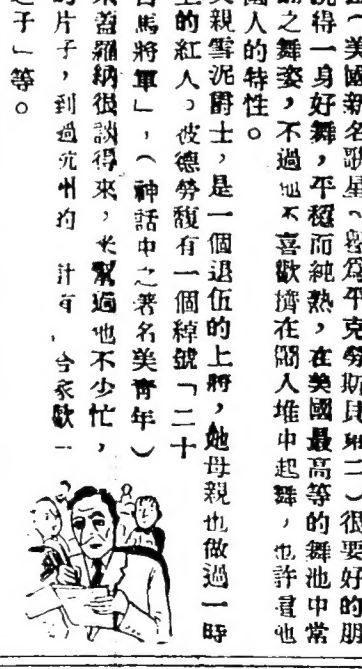 （美國新名歌星、譽爲平克勞斯貝第二）很要好的朋
說得一身好舞，平穩而純熟，在美國最高等的舞池中常
之舞姿，不過他不喜歡擠在闊人堆中起舞，也許這也
國人的特性。
父親雪泥爵士，是一個退伍的上將，她母親也做過一時
上的紅人。彼德勞馥有一個綽號「二十
白馬將軍」，（神話中之著名美青年）
蓋羅納很談得來，幫過他不少忙，
的片子，到過 州的 計有 合家歡一
之子」等。